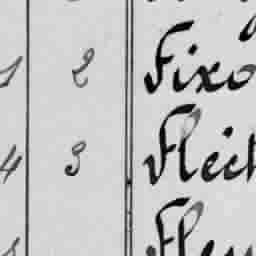 1 2 Fixo
4 3 Fleit
Fleu